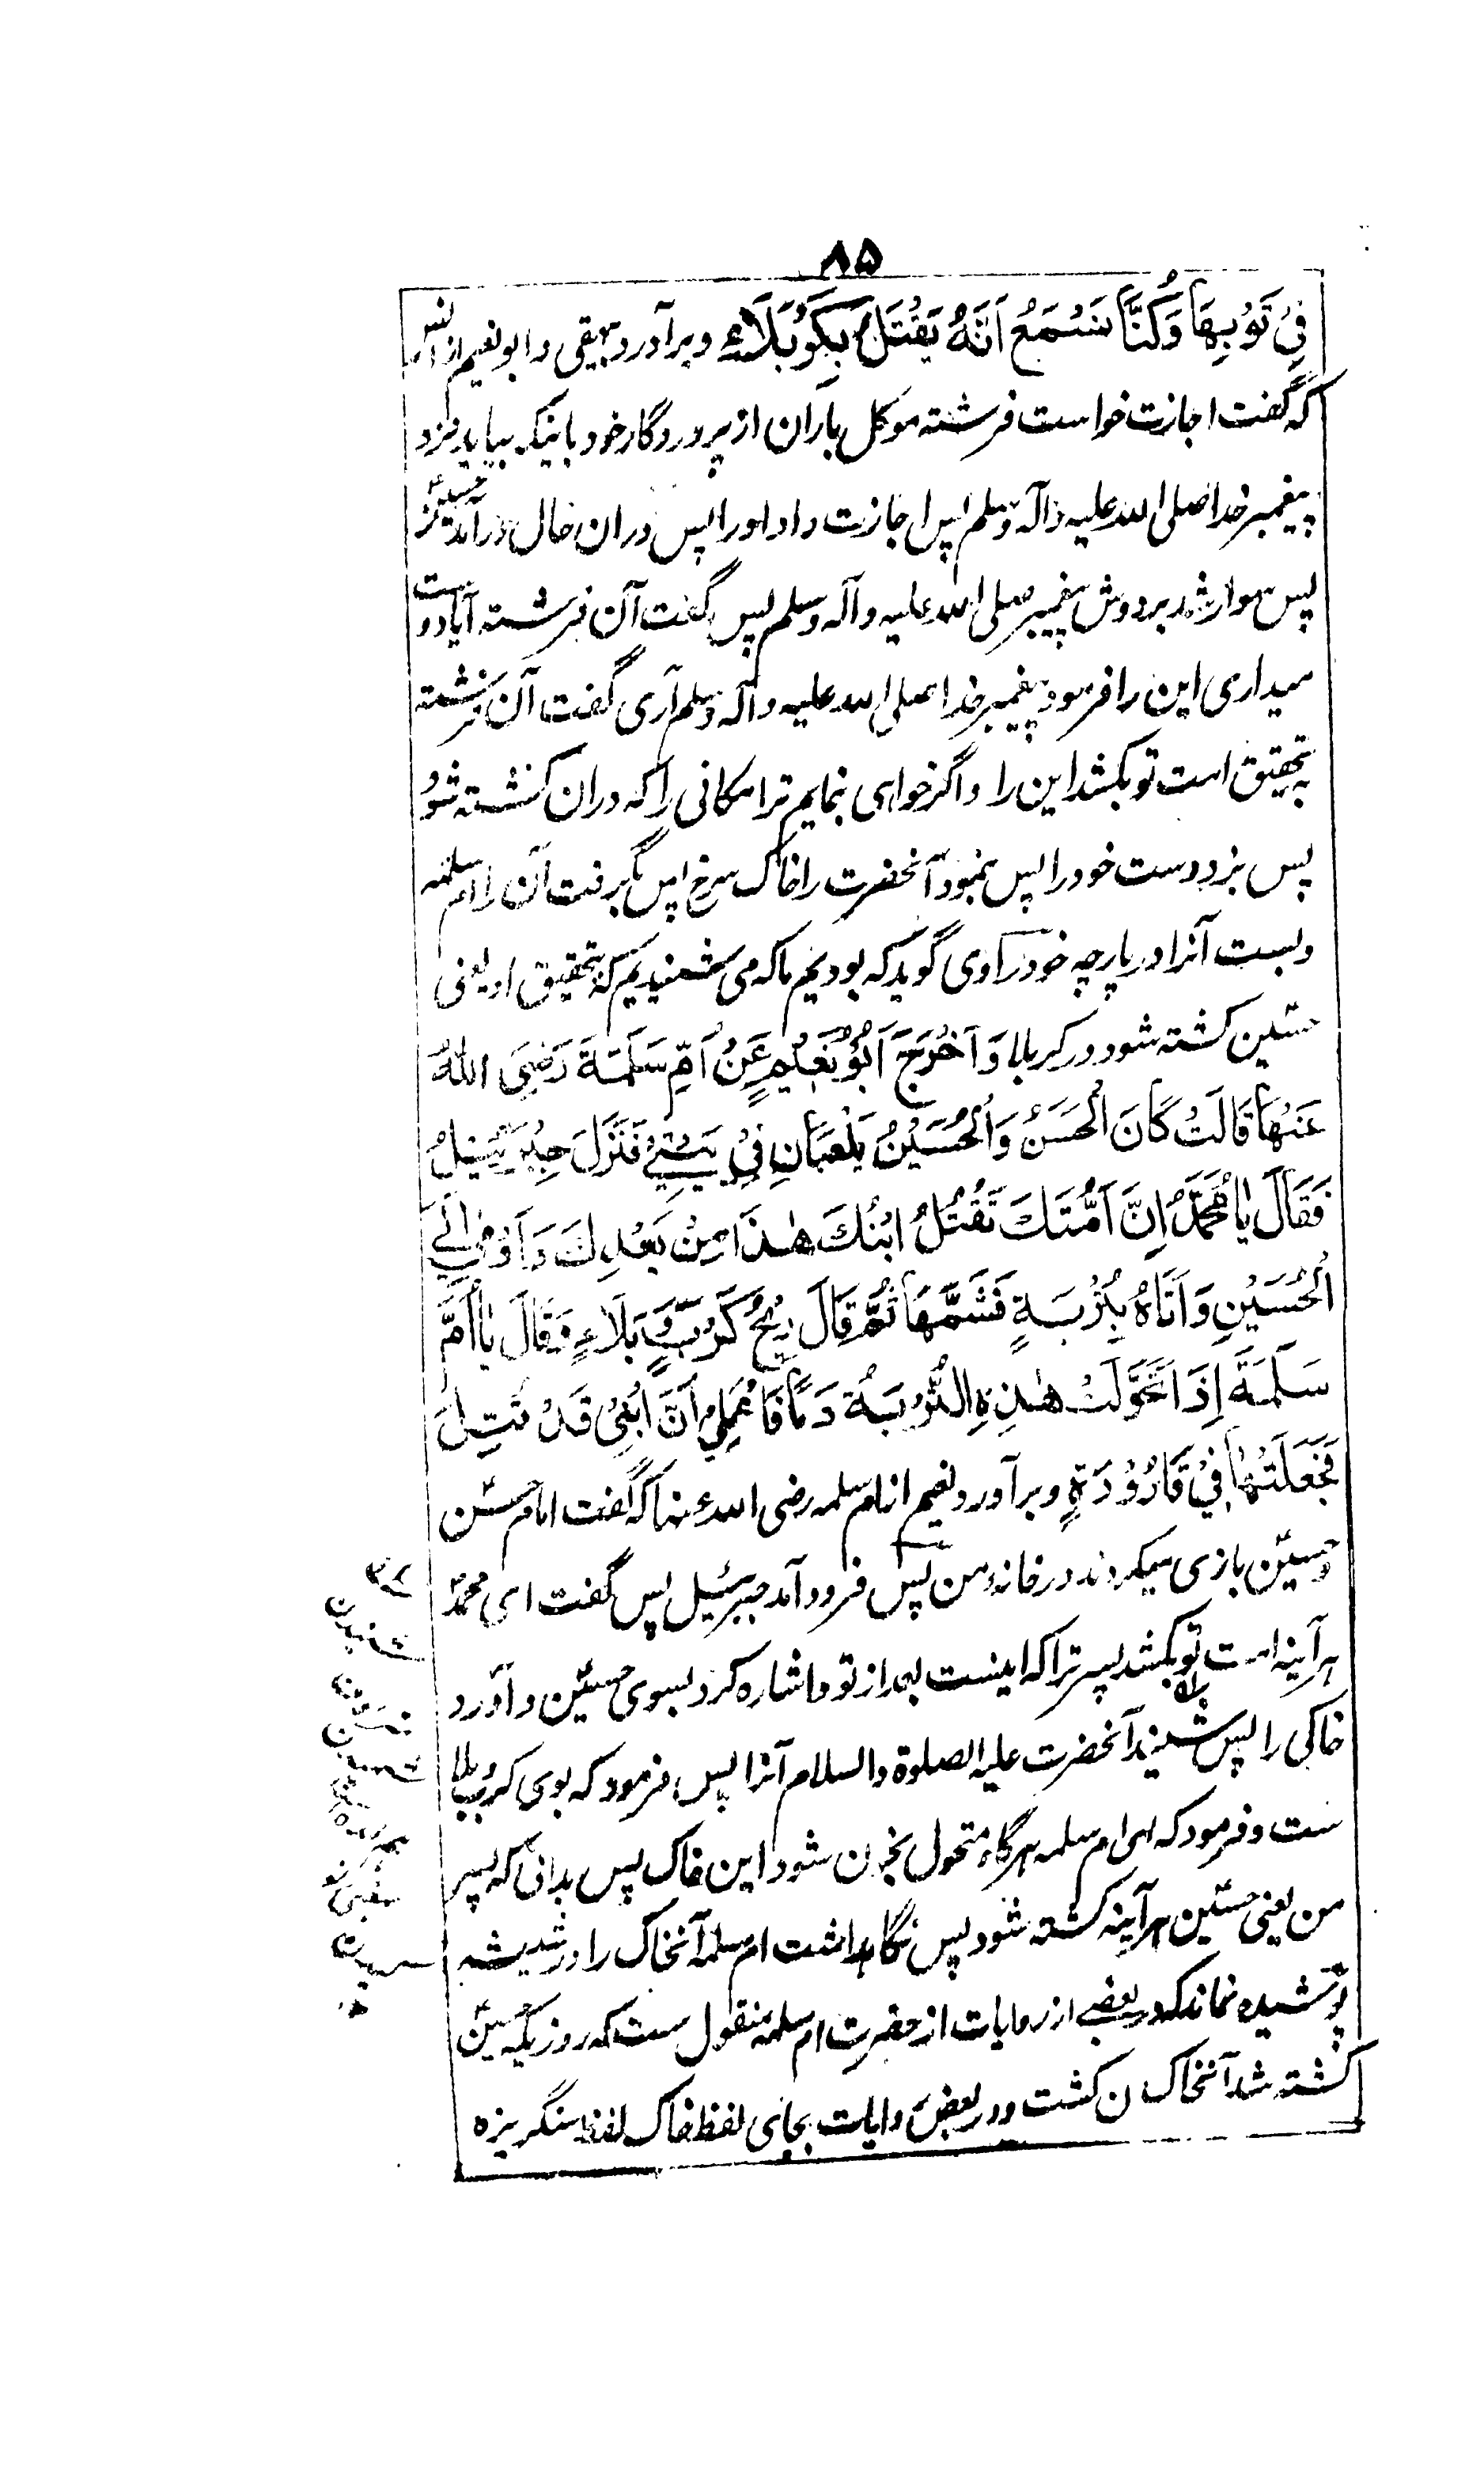 ۸۵
فِيْ ثَوْبِهَا وَكُنَّا نَسْمَعُ اَنَّهُ يُقْتَلُ بِكَرْبَلَاءِ و برآورد بیهقی و ابونعیم از انس
که گفت اجازت خواست فرشته موکل باران از پروردگار خود باینکه بیاید نزد
پیغمبر خدا صلی الله علیه وآله وسلم پس اجازت داد اورا پس دران حال درآمد حسینؑ
پس سوار شد بر دوش پیغمبر صلی الله علیه وآله وسلم پس گفت آن فرشته آیا دوست
میداری این را فرمود پیغمبر خدا صلی الله علیه وآله وسلم آری گفت آن فرشته
بتحقیق امت تو بکشد این را و اگر خواهی بنمایم ترا مکانی را که دران کشته شود
پس بزد دست خود را پس نمود آنحضرت را خاک سرخ پس بگرفت آن را ام سلمه
و بست آنرا در پارچه خود راوی گوید که بودیم ما که می شنیدیم که بتحقیق او یعنی
حسینؑ کشته شود در کربلا وَاَخْرَجَ اَبُوْ نُعَيْمٍ عَنْ اُمِّ سَلَمَةَ رَضِيَ اللهُ
عَنْهَا قَالَتْ كَانَ الْحَسَنُ وَالْحُسَيْنُ يَلْعَبَانِ فِيْ بَيْتِيْ فَنَزَلَ جِبْرَئِيْلُ
فَقَالَ يَا مُحَمَّدُ اِنَّ اُمَّتَكَ تَقْتُلُ ابْنَكَ هٰذَا مِنْ بَعْدِكَ وَاَوْمٰى اِلَى
الْحُسَيْنِ وَاَتَاهُ بِتُرْبَةٍ فَشَمَّهَا ثُمَّ قَالَ رِيْحُ كَرْبٍ وَّ بَلَاءٍ فَقَالَ يَا اُمَّ
سَلَمَةَ اِذَا تَحَوَّلَتْ هٰذِهِ التُّرْبَةُ دَمًا فَاعْلَمِيْ اَنَّ ابْنِيْ قَدْ قُتِلَ
فَجَعَلَتْهَا فِيْ قَارُوْرَةٍ و برآورد نعیم از ام سلمه رضی الله عنها که گفت امام حسنؑ
و حسینؑ بازی میکردند در خانهٔ من پس فرود آمد جبرئیل پس گفت ای محمدؐ
هر آینه امت تو بکشد پسر ترا که اینست بعد از تو و اشاره کرد بسوی حسینؑ و آورد
خاکی را پس شمید آنحضرت علیه الصلوة والسلام آنرا پس فرمود که بوی کرب و بلا
ست و فرمود که ای ام سلمه هرگاه متحول بخون شود این خاک پس بدانی که پسر
من یعنی حسینؑ هر آینه کشته شود پس نگاهداشت ام سلمه آنخاک را در شیشه
پوشیده نماند که در بعضے از روایات از حضرت ام سلمه منقول ست که روزیکه حسینؑ
کشته شد آنخاک خون گشت و در بعض روایات بجای لفظ خاک لفظ سنگریزه